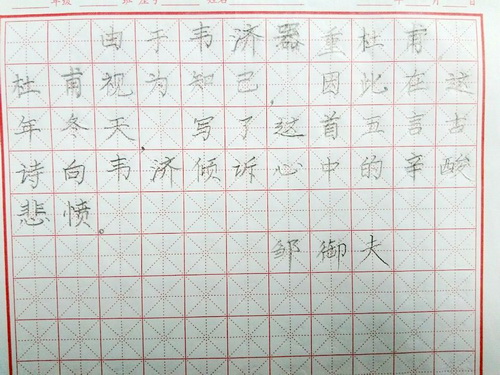 年级 班 座号 姓名 年 月 日
由于韦济器重杜甫,
杜甫视为知己,因此在这
年冬天,写了这首五言古
诗向韦济倾诉心中的辛酸
悲愤。
邹御夫